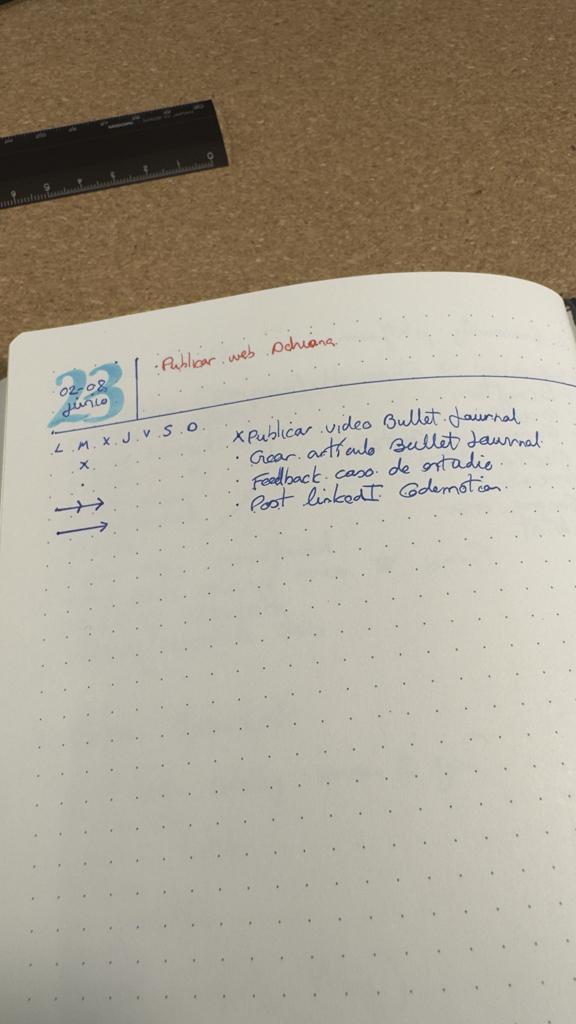 0 1 2 3 4 5 6
23
02-08
junio
· Publicar web Adriana
L M X J V S D.
x Publicar video Bullet Journal
x
· Crear artículo Bullet Journal
· Feedback caso de estudio
· Post linkedI Codemotion